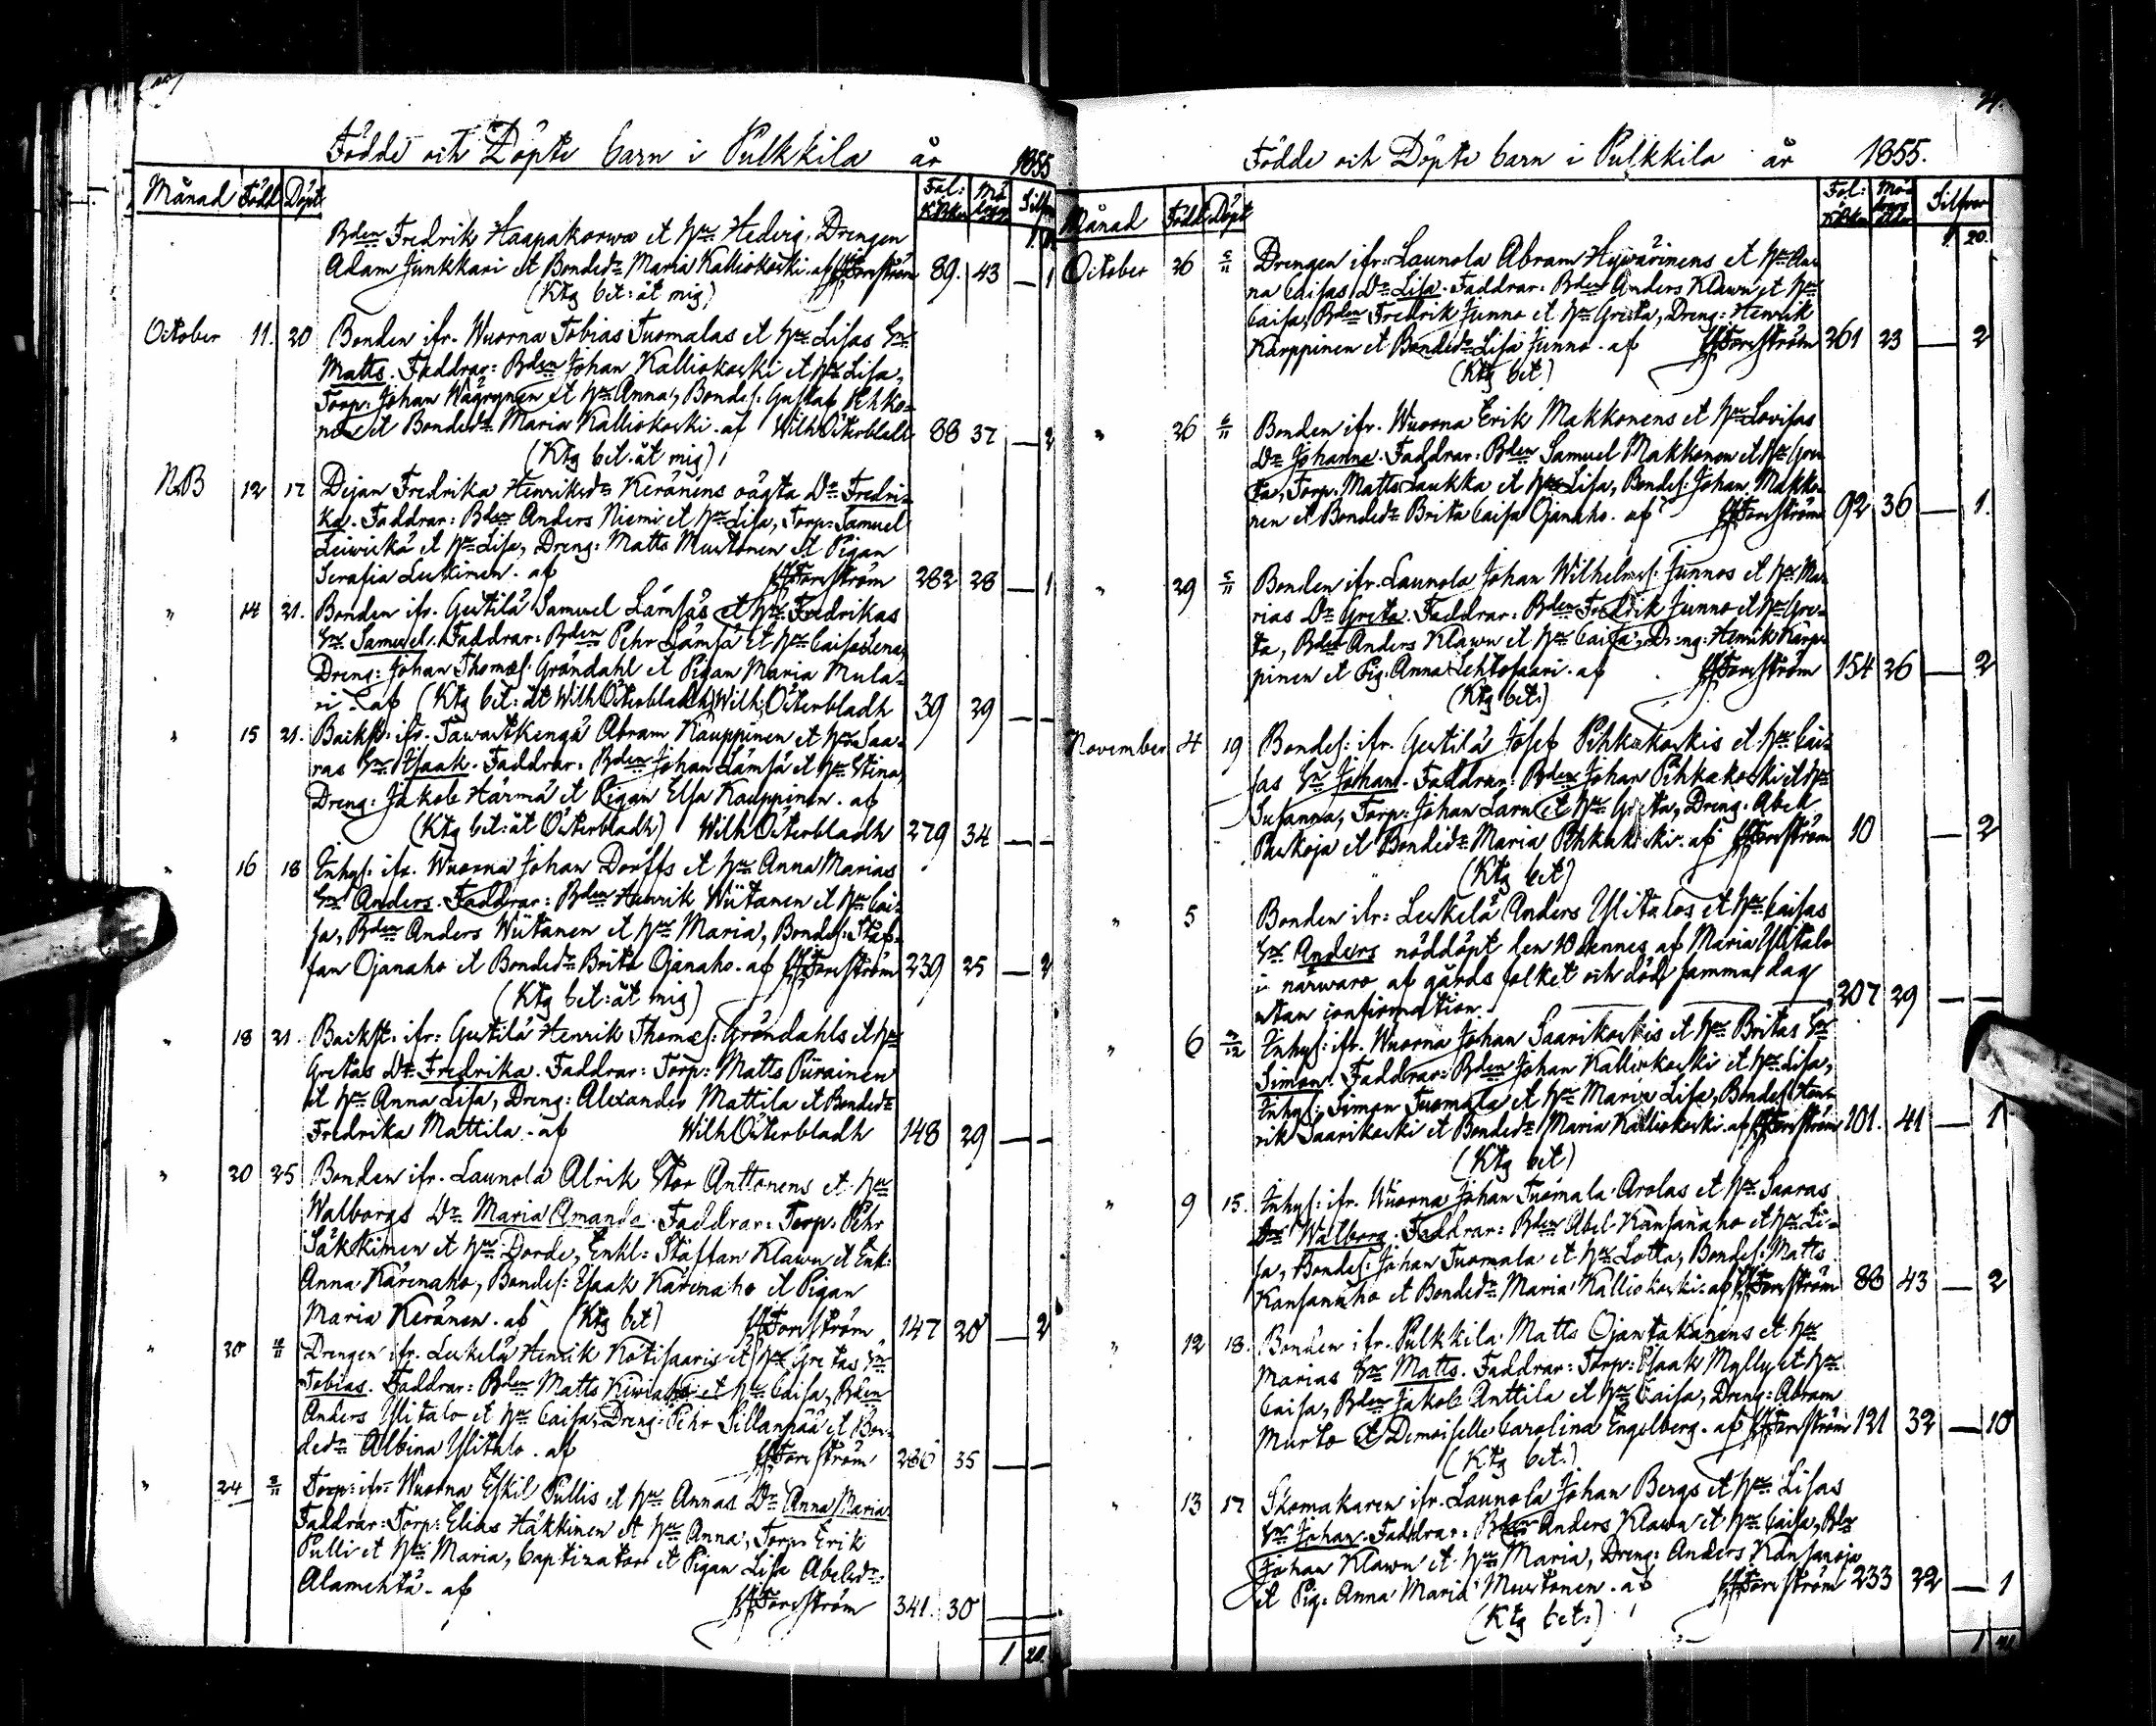 Födde och Döpte barn i Pulkkila år 1855
Månad Född Döpt Fol: KBken Silfver
Bden Fredrik Haapakorwa et Hu Hedvig, Drengen
Adam Junkkari et Bonded:r Maria Kalliokoski. af HForsström 89. 43 — 1
(Ktg bet: åt mig)
October 11. 20 Bonden ifr. Wuorna Tobias Tuomalas et Hu Lisas Sn
Matts. Faddrar: Bden Johan Kalliokoski et Hu Lisa,
Torp: Johan Wägrynen et Hu Anna, Bondes: Gustaf Pihko-
nen et Bonded:r Maria Kalliokoski. af Wilh Österbladh 88 37 — 2
(Ktg bet. åt mig)
NB 12 17 Dejan Fredrika Henriksd:r Keränens oägta Dr Fredri-
ka. Faddrar: Bden Anders Niemi et Hu Lisa, Torp: Samuel
Leiwiskä et Hu Lisa, Dreng: Matts Mustonen et Pigan
Serafia Leskinen. af HForsström 282 28 — 1
" 14 21. Bonden ifr. Gertilä Samuel Lämsäs et Hu Fredrikas
Sn Samuel. Faddrar: Bden Pehr Lämsä et Hu Caisa Lena,
Dreng: Johan Thomæs: Grandahl et Pigan Maria Mula-
ri. af (Ktg bet: åt Wilh Österbladh) Wilh Österbladh 39 29 — —
" 15 21. Backst: ifr. Tawastkengä Abram Kauppinen et Hu Saa-
ras Sn Isaak. Faddrar: Bden Johan Lämsä et Hu Stina,
Dreng: Jakob Härmä et Pigan Elsa Kauppinen. af
(Ktg bet: åt Österbladh) Wilh Österbladh 279 34 — —
" 16 18 Inhys: ifr. Wuorna Johan Dorffs et Hu Anna Marias
Sn Anders. Faddrar: Bden Henrik Wiitanen et Hu Cai-
sa, Bden Anders Wiitanen et Hu Maria, Bondes: Staf-
fan Ojanaho et Bonded:r Brita Ojanaho. af HForsström 239 25 — 2
(Ktg bet: åt mig)
" 18 21. Backst: ifr: Gertilä Henrik Thomæs: Gröndahls et Hu
Gretas Dr Fredrika. Faddrar: Torp: Matts Piirainen
et Hu Anna Lisa, Dreng: Alexander Mattila et Bonded:r
Fredrika Mattila. af Wilh Österbladh 148 29 — —
" 20 25 Bonden ifr. Launola Alrik Stor Anttonens et Hu
Walborgs Dr Maria Amanda. Faddrar: Torp: Pehr
Säkkinen et Hu Dorde, Enkl: Staffan Klawu et Enk:
Anna Kärenaho, Bondes: Isaak Kärenaho et Pigan
Maria Keränen. af (Ktg bet) HForsström 147 20 — 2
" 20 Drengen ifr. Leskelä Henrik Kotisaaris et Hu Gretas Sn
Tobias. Faddrar: Bden Matts Kiwiaho et Hu Caisa, Bden
Anders Ylitalo et Hu Caisa, Dreng: Pehr Sillanpää et Bon-
ded:r Albina Ylitalo. af HForsström 236 35 — —
" 24 Torp: ifr: Wuorna Eskil Pullis et Hu Annas Dr Anna Maria
Faddrar: Torp: Elias Häkkinen et Hu Anna, Torp: Erik
Pulli et Hu Maria, baptizator et Pigan Lisa Abelsd:r
Alamehtä. af HForsström 341. 30 — —
1 20.
Födde och Döpte barn i Pulkkila år 1855.
Månad Född Döpt Fol: KBken Mödrars ålder Silfver
1 20.
October 26 5/11 Drengen ifr: Launola Abram Hywärinens et Hu An-
na Caisas Dr Lisa. Faddrar: Bden Anders Klawu et Hu
Caisa, Bden Fredrik Junno et Hu Greta, Dreng: Henrik
Karppinen et Bonded:r Lisa Junno. af HForsström 261 23 — 2
(Ktg bet)
" 26 6/11 Bonden ifr. Wuorna Erik Makkonens et Hu Lovisas
Dr Johanna. Faddrar: Bden Samuel Makkonen et Hu Gre-
ta, Torp: Matts Laukka et Hu Lisa, Bondes: Johan Makko-
nen et Bonded:r Brita Caisa Ojanaho. af HForsström 92 36 — 1.
" 29 5/11 Bonden ifr. Launola Johan Wilhelms: Junnos et Hu Ma-
rias Dr Greta. Faddrar: Bden Fredrik Junno et Hu Gre-
ta, Bden Anders Klawu et Hu Caisa, Dreng: Henrik Karp-
pinen et Pig: Anna Lehtosaari. af HForsström 154 26 — 2
(Ktg bet:)
November 4 19 Bondes: ifr. Gertilä Josef Pihkakoskis et Hu Cai-
sas Sn Johan. Faddrar: Bden Johan Pihkakoski et Hu
Susanna, Torp: Johan Laru et Hu Greta, Dreng: Abel
Paskoja et Bonded:r Maria Pihkakoski. af HForsström 10 — 2
(Ktg bet)
" 5 Bonden ifr: Leskelä Anders Ylitalos et Hu Caisas
Sn Anders nöddöpt den 10 dennes af Maria Ylitalo
i närwaro af gårds folket och död samma dag
utan confirmation. 207 29 — —
" 6 Inhys: ifr. Wuorna Johan Saarikoskis et Hu Britas Sn
Simon. Faddrar: Bden Johan Kalliokoski et Hu Lisa,
Inhys: Simon Tuomala et Hu Maria Lisa, Bondes: Hen-
rik Saarikoski et Bonded:r Maria Kalliokoski. af HForsström 101. 41 — 1
(Ktg bet)
" 9 15. Inhys: ifr. Wuorna Johan Tuomala Arolas et Hu Saaras
Dr Walborg. Faddrar: Bden Abel Kansanaho et Hu Li-
sa, Bondes: Johan Tuomala et Hu Lotta, Bondes: Matts
Kansanaho et Bonded:r Maria Kalliokoski. af HForsström 88 43 — 2
" 12 18. Bonden ifr. Pulkkila Matts Ojantakanens et Hu
Marias Sn Matts. Faddrar: Torp: Isaak Mylly et Hu
Caisa, Bden Jakob Anttila et Hu Caisa, Dreng: Abram
Murto et Demoiselle Carolina Engelberg. af HForsström 121 32 — 10
(Ktg bet.)
" 13 17 Skomakaren ifr. Launola Johan Bergs et Hu Lisas
Sn Johan. Faddrar: Bden Anders Klawu et Hu Caisa, Bden
Johan Klawu et Hu Maria, Dreng: Anders Kansanoja
et Pig: Anna Maria Mustonen. af HForsström 233 32 — 1
(Ktg bet:)